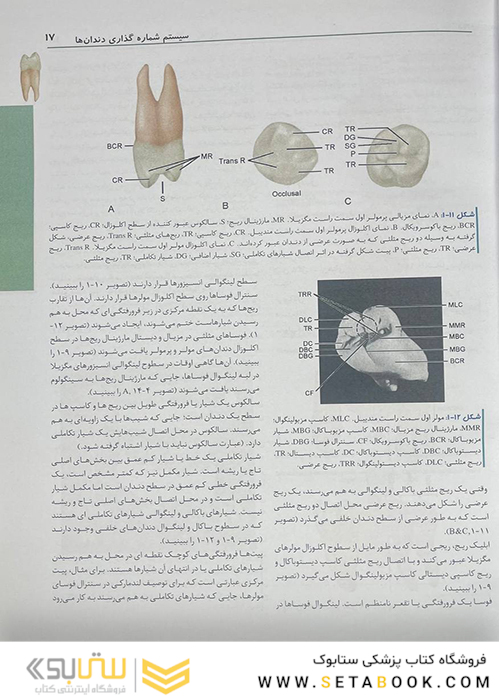 سیستم شماره گذاری دندان‌ها
۱۷
BCR
CR
MR
S
A
Trans R
CR
TR
TR
B
Occlusal
TR
DG
SG
P
TR
C
شکل ۱۱-۱: A، نمای مزیالی پرمولر اول سمت راست مگزیلا. MR، مارژینال ریج؛ S، سالکوس عبور کننده از سطح اکلوزال؛ CR، ریج کاسپی؛
BCR، ریج باکوسرویکال. B، نمای اکلوزال پرمولر اول سمت راست مندیبل. CR، ریج کاسپی؛ TR، ریج‌های مثلثی؛ Trans R، ریج عرضی، شکل
گرفته به وسیله دو ریج مثلثی که به صورت عرضی از دندان عبور کرده‌اند. C، نمای اکلوزال مولر اول سمت راست مگزیلا. Trans R، ریج
عرضی؛ TR، ریج مثلثی؛ P، پیت شکل گرفته در اثر اتصال شیارهای تکاملی؛ SG، شیار اضافی؛ DG، شیار تکاملی؛ TR، ریج مثلثی.
سطح لینگوالی انسیزورها قرار دارند (تصویر ۱۰-۱ را ببینید).
سنترال فوساها روی سطح اکلوزال مولرها قرار دارند. آن‌ها از تقارب
ریج‌ها که به یک نقطه مرکزی در زیر فرورفتگی‌ای که محل به هم
رسیدن شیارهاست ختم می‌شوند، ایجاد می‌شوند (تصویر ۱۲-
۱). فوساهای مثلثی در مزیال و دیستال مارژینال ریج‌ها در سطح
اکلوزال دندان‌های مولر و پرمولر یافت می‌شوند (تصویر ۹-۱ را
ببینید). آن‌ها گاهی اوقات در سطوح لینگوالی انسیزورهای مگزیلا
در لبه لینگوال فوساها، جایی که مارژینال ریج‌ها به سینگولوم
می‌رسند یافت می‌شوند (تصویر ۴-۱۴، A را ببینید).
سالکوس یک شیار یا فرورفتگی طویل بین ریج ها و کاسپ ها در
سطح یک دندان است؛ جایی که شیب‌ها با یک زاویه‌ای به هم
می‌رسند. سالکوس در محل اتصال شیب‌هایش یک شیار تکاملی
دارد. (عبارت سالکوس نباید با شیار اشتباه گرفته شود.)
شیار تکاملی یک خط یا شیار کم عمق بین بخش‌های اصلی
تاج یا ریشه است. شیار مکمل نیز که کمتر مشخص است، یک
فرورفتگی خطی کم عمق در سطح دندان است اما مکمل شیار
تکاملی است و در محل اتصال بخش‌های اصلی تاج و ریشه
نیست. شیارهای باکالی و لینگوالی شیارهای تکاملی ای هستند
که در سطوح باکال و لینگوال دندان‌های خلفی وجود دارند
(تصویر ۹-۱ و ۱۲-۱ را ببینید).
پیت‌ها فرورفتگی‌های کوچک نقطه ای در محل به هم رسیدن
شیارهای تکاملی یا در انتهای آن شیارها هستند. برای مثال، پیت
مرکزی عبارتی است که برای توصیف لندمارکی در سنترال فوسای
مولرها، جایی که شیارهای تکاملی به هم می‌رسند به کار می‌رود
TRR
DLC
TR
DC
DBC
DBG
CF
MLC
MMR
MBC
MBG
BCR
شکل ۱۲-۱: مولر اول سمت راست مندیبل. MLC، کاسپ مزیولینگوال؛
MMR، مارژینال ریج مزیال؛ MBC، کاسپ مزیوباکال؛ MBG، شیار
مزیوباکال؛ BCR، ریج باکوسرویکال؛ CF، سنترال فوسا؛ DBG، شیار
دیستوباکال؛ DBC، کاسپ دیستوباکال؛ DC، کاسپ دیستال؛ TR،
ریج مثلثی؛ DLC، کاسپ دیستولینگوال؛ TRR، ریج عرضی.
وقتی یک ریج مثلثی باکالی و لینگوالی به هم می‌رسند، یک ریج
عرضی را شکل می‌دهند. ریج عرضی محل اتصال دو ریج مثلثی
است که به طور عرضی از سطح دندان خلفی می‌گذرد (تصویر
۱۱-۱،B&C).
ابلیک ریج، ریجی است که به طور مایل از سطوح اکلوزال مولرهای
مگزیلا عبور می‌کند و با اتصال ریج مثلثی کاسپ دیستوباکال و
ریج کاسپی دیستالی کاسپ مزیولینگوال شکل می‌گیرد (تصویر
۹-۱ را ببینید).
فوسا یک فرورفتگی یا تقعر نامنظم است. لینگوال فوساها در
فروشگاه کتاب پزشکی ستابوک
WWW.SETABOOK.COM
ستابوک
فروشگاه اینترنتی کتاب